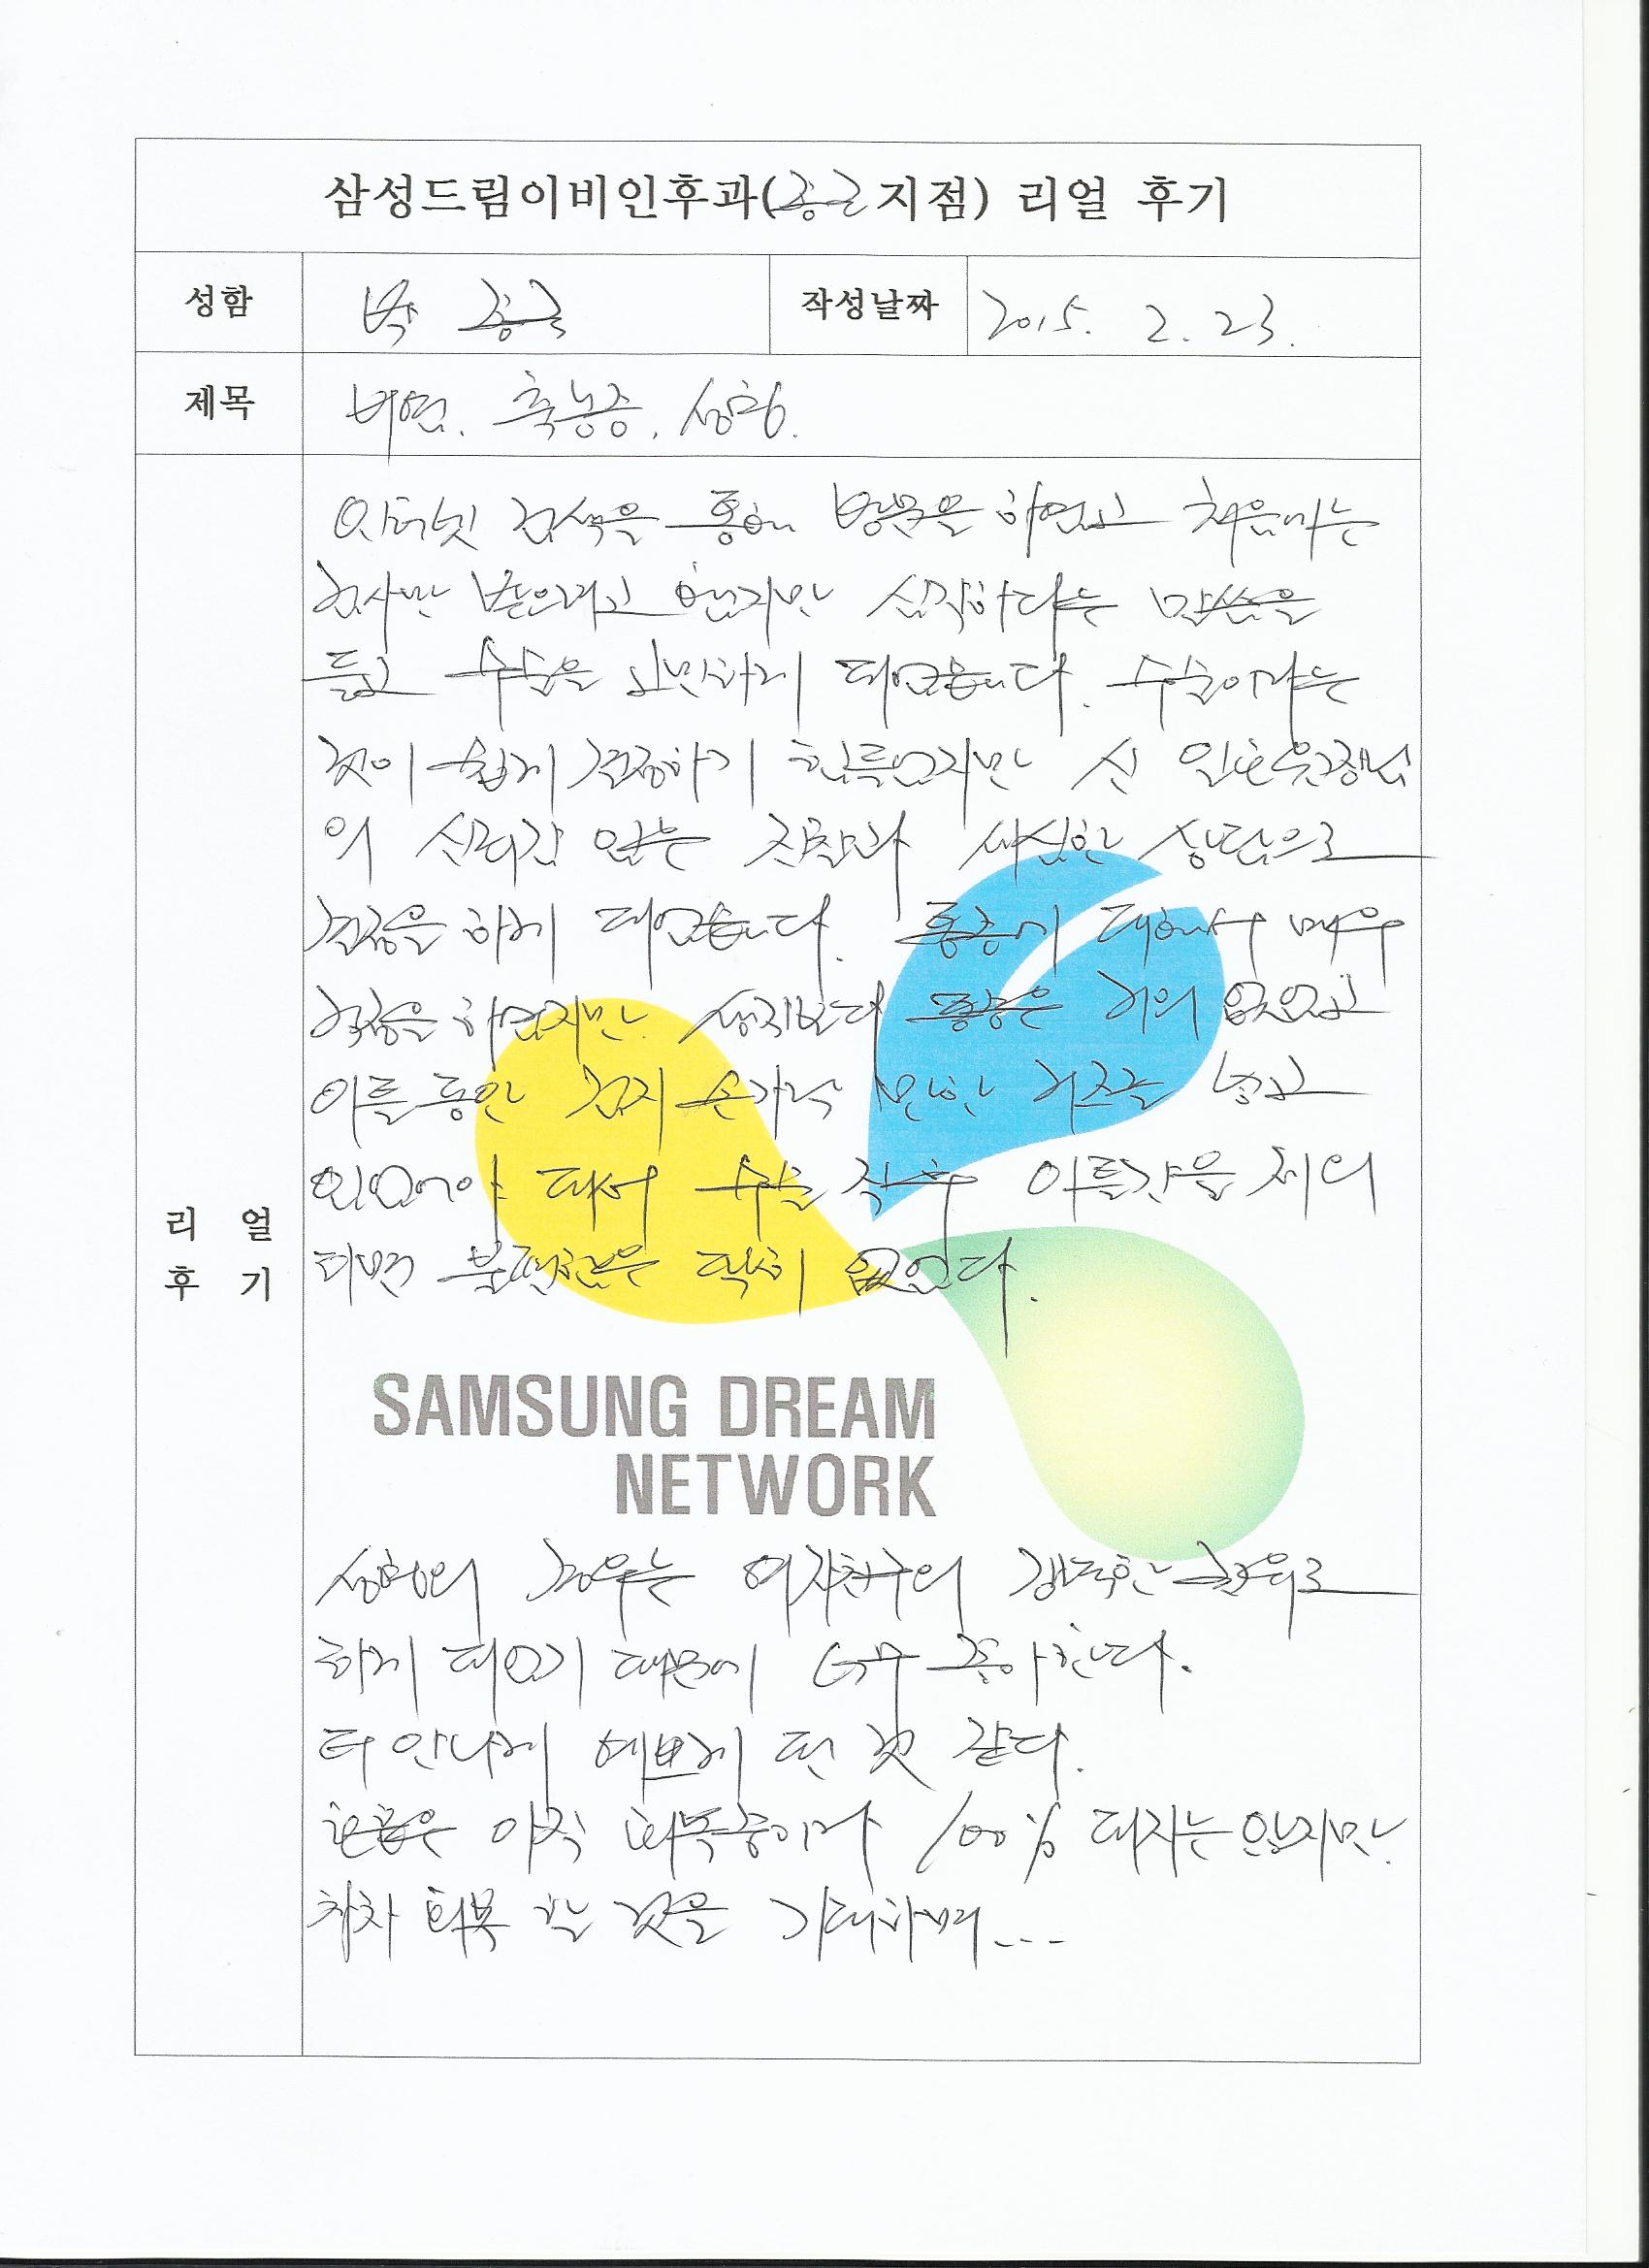 삼성드림이비인후과(종로지점) 리얼 후기
성함 박 종국 작성날짜 2015. 2. 23.
제목 비염. 축농증. 성형.
인터넷 검색을 통해 방문을 하였고 처음에는
검사만 받으려고 했지만 심각하다는 말씀을
듣고 수술을 고민하게 되었습니다. 수술이라는
것이 쉽게 결정하기 힘들었지만 신 일호 원장님
의 신뢰감 있는 진찰과 세심한 상담으로
결정을 하게 되었습니다. 통증에 대해서 매우
걱정을 하였지만 생각보다 통증은 거의 없었고
이틀 동안 검지 손가락 만한 거즈를 넣고
있어야 돼서 수술 직후 이틀간을 제외
하면 불편함은 딱히 없었다.
리 얼
후 기
SAMSUNG DREAM
NETWORK
성형의 경우는 여자친구의 강력한 권유로
하게 되었기 때문에 너무 좋아한다.
티 안나게 예쁘게 된 것 같다.
호흡은 아직 회복중이라 100% 되지는 않지만
차차 회복 할 것을 기대하며...